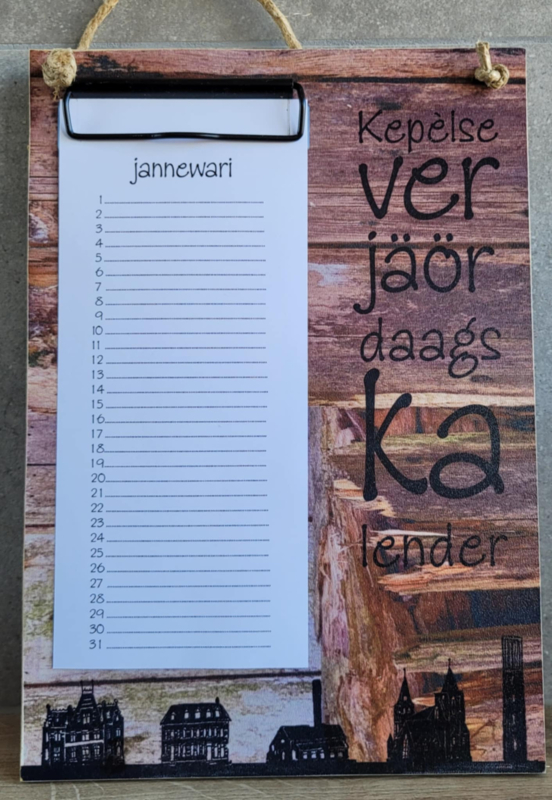 jannewari
1
2
3
4
5
6
7
8
9
10
11
12
13
14
15
16
17
18
19
20
21
22
23
24
25
26
27
28
29
30
31
Kepèlse
ver
jäör
daags
ka
lender